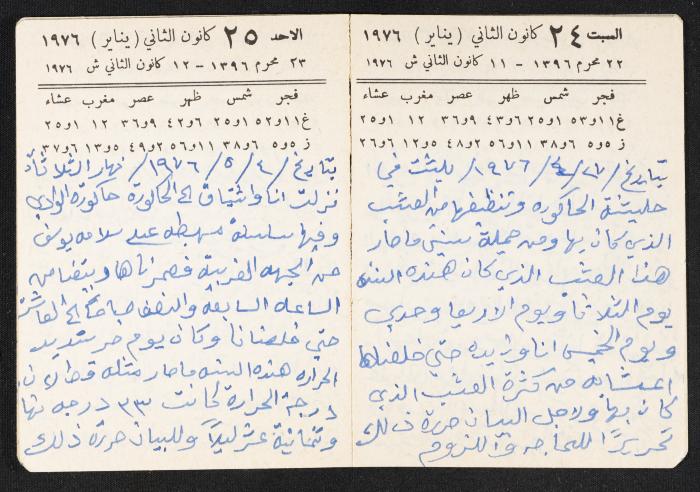 السبت ٢٤ كانون الثاني ( يناير ) ١٩٧٦
٢٢ محرم ١٣٩٦ - ١١ كانون الثاني ش ١٩٧٦
فجر شمس ظهر عصر مغرب عشاء
غ ١١و٥٣ ١و٢٥ ٦و٤٣ ٩و٣٦ ١٢ ١و٢٥
ز ٥و٥ ٦و٣٨ ١١و٥٦ ٢و٤٨ ٥و١٢ ٦و٣٦
بتاريخ /٢٧/ ٤ /١٩٧٦/ بليشت في
حليشة الحاكوره وتنظيفها من العشب
الذي كان بها ومن جملة سنين ما صار
هذا العشب الذي كان هذه السنه
يوم الثلاثاء ويوم الاربعا وحدي
ويوم الخميس انا وزيده حتى خلصناها
اعشابه من كثرة العشب الذي
كان بها ولاجل البيان حررة ذلك
تحريرًا للحاجه واللزوم
الاحد ٢٥ كانون الثاني ( يناير ) ١٩٧٦
٢٣ محرم ١٣٩٦ - ١٢ كانون الثاني ش ١٩٧٦
فجر شمس ظهر عصر مغرب عشاء
غ ١١و٥٢ ١و٢٥ ٦و٤٢ ٩و٣٦ ١٢ ١و٢٥
ز ٥و٥ ٦و٣٨ ١١و٥٦ ٢و٤٩ ٥و١٣ ٦و٣٧
بتاريخ /٤/ ٥ /١٩٧٦/ نهار الثلاثاء
نزلت انا واشتياق الى الحاكورة حاكورة الوادي
وفيها سلسلة مهبطه على سلامه يوسف
من الجهه الغربية فعمرناها وبتضامن
الساعه السابعه والنصف صباحًا الى العاشره
حتى خلصنانا وكان يوم حر شديد
الحراره هذه السنه ما صار مثله قط الان
درجة الحرارة كانت ٣٣ درجه نها
وثمانية عشر ليلًا وللبيان حررة ذلك